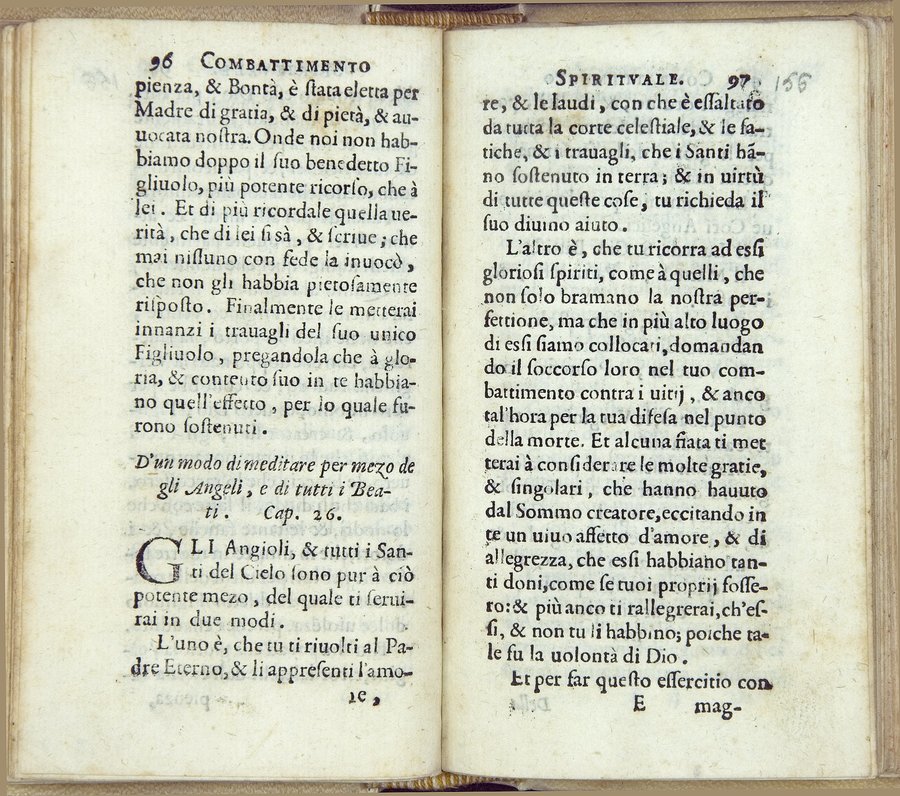 96 COMBATTIMENTO
pienza, & Bontà, è ſtata eletta per
Madre di gratia, & di pietà, & au-
uocata noſtra. Onde noi non hab-
biamo doppo il ſuo benedetto Fi-
gliuolo, più potente ricorſo, che à
lei. Et di più ricordale quella ue-
rità, che di lei ſi sà, & ſcriue; che
mai niſſuno con fede la inuocò,
che non gli habbia pietoſamente
riſpoſto. Finalmente le metterai
innanzi i trauagli del ſuo unico
Figliuolo, pregandola che à glo-
ria, & contento ſuo in te habbia-
no quell'effetto, per lo quale fu-
rono ſoſtenuti.
D'un modo di meditare per mezo de
gli Angeli, e di tutti i Bea-
ti. Cap. 26.
GLI Angioli, & tutti i San-
ti del Cielo ſono pur à ciò
potente mezo, del quale ti ſerui-
rai in due modi.
L'uno è, che tu ti riuolti al Pa-
dre Eterno, & li appreſenti l'amo-
re,
SPIRITVALE. 97 156
re, & le laudi, con che è eſſaltato
da tutta la corte celeſtiale, & le fa-
tiche, & i trauagli, che i Santi hã-
no ſoſtenuto in terra; & in uirtù
di tutte queſte coſe, tu richieda il
ſuo diuino aiuto.
L'altro è, che tu ricorra ad eſſi
glorioſi ſpiriti, come à quelli, che
non ſolo bramano la noſtra per-
fettione, ma che in più alto luogo
di eſſi ſiamo collocati, domandan
do il ſoccorſo loro nel tuo com-
battimento contra i uitij, & anco
tal'hora per la tua difeſa nel punto
della morte. Et alcuna fiata ti met
terai à conſiderare le molte gratie,
& ſingolari, che hanno hauuto
dal Sommo creatore, eccitando in
te un uiuo affetto d'amore, & di
allegrezza, che eſſi habbiano tan-
ti doni, come ſe tuoi proprij foſſe-
ro: & più anco ti rallegrerai, ch'eſ-
ſi, & non tu li habbino; poiche ta-
le fu la uolontà di Dio.
Et per far queſto eſſercitio con
E mag-